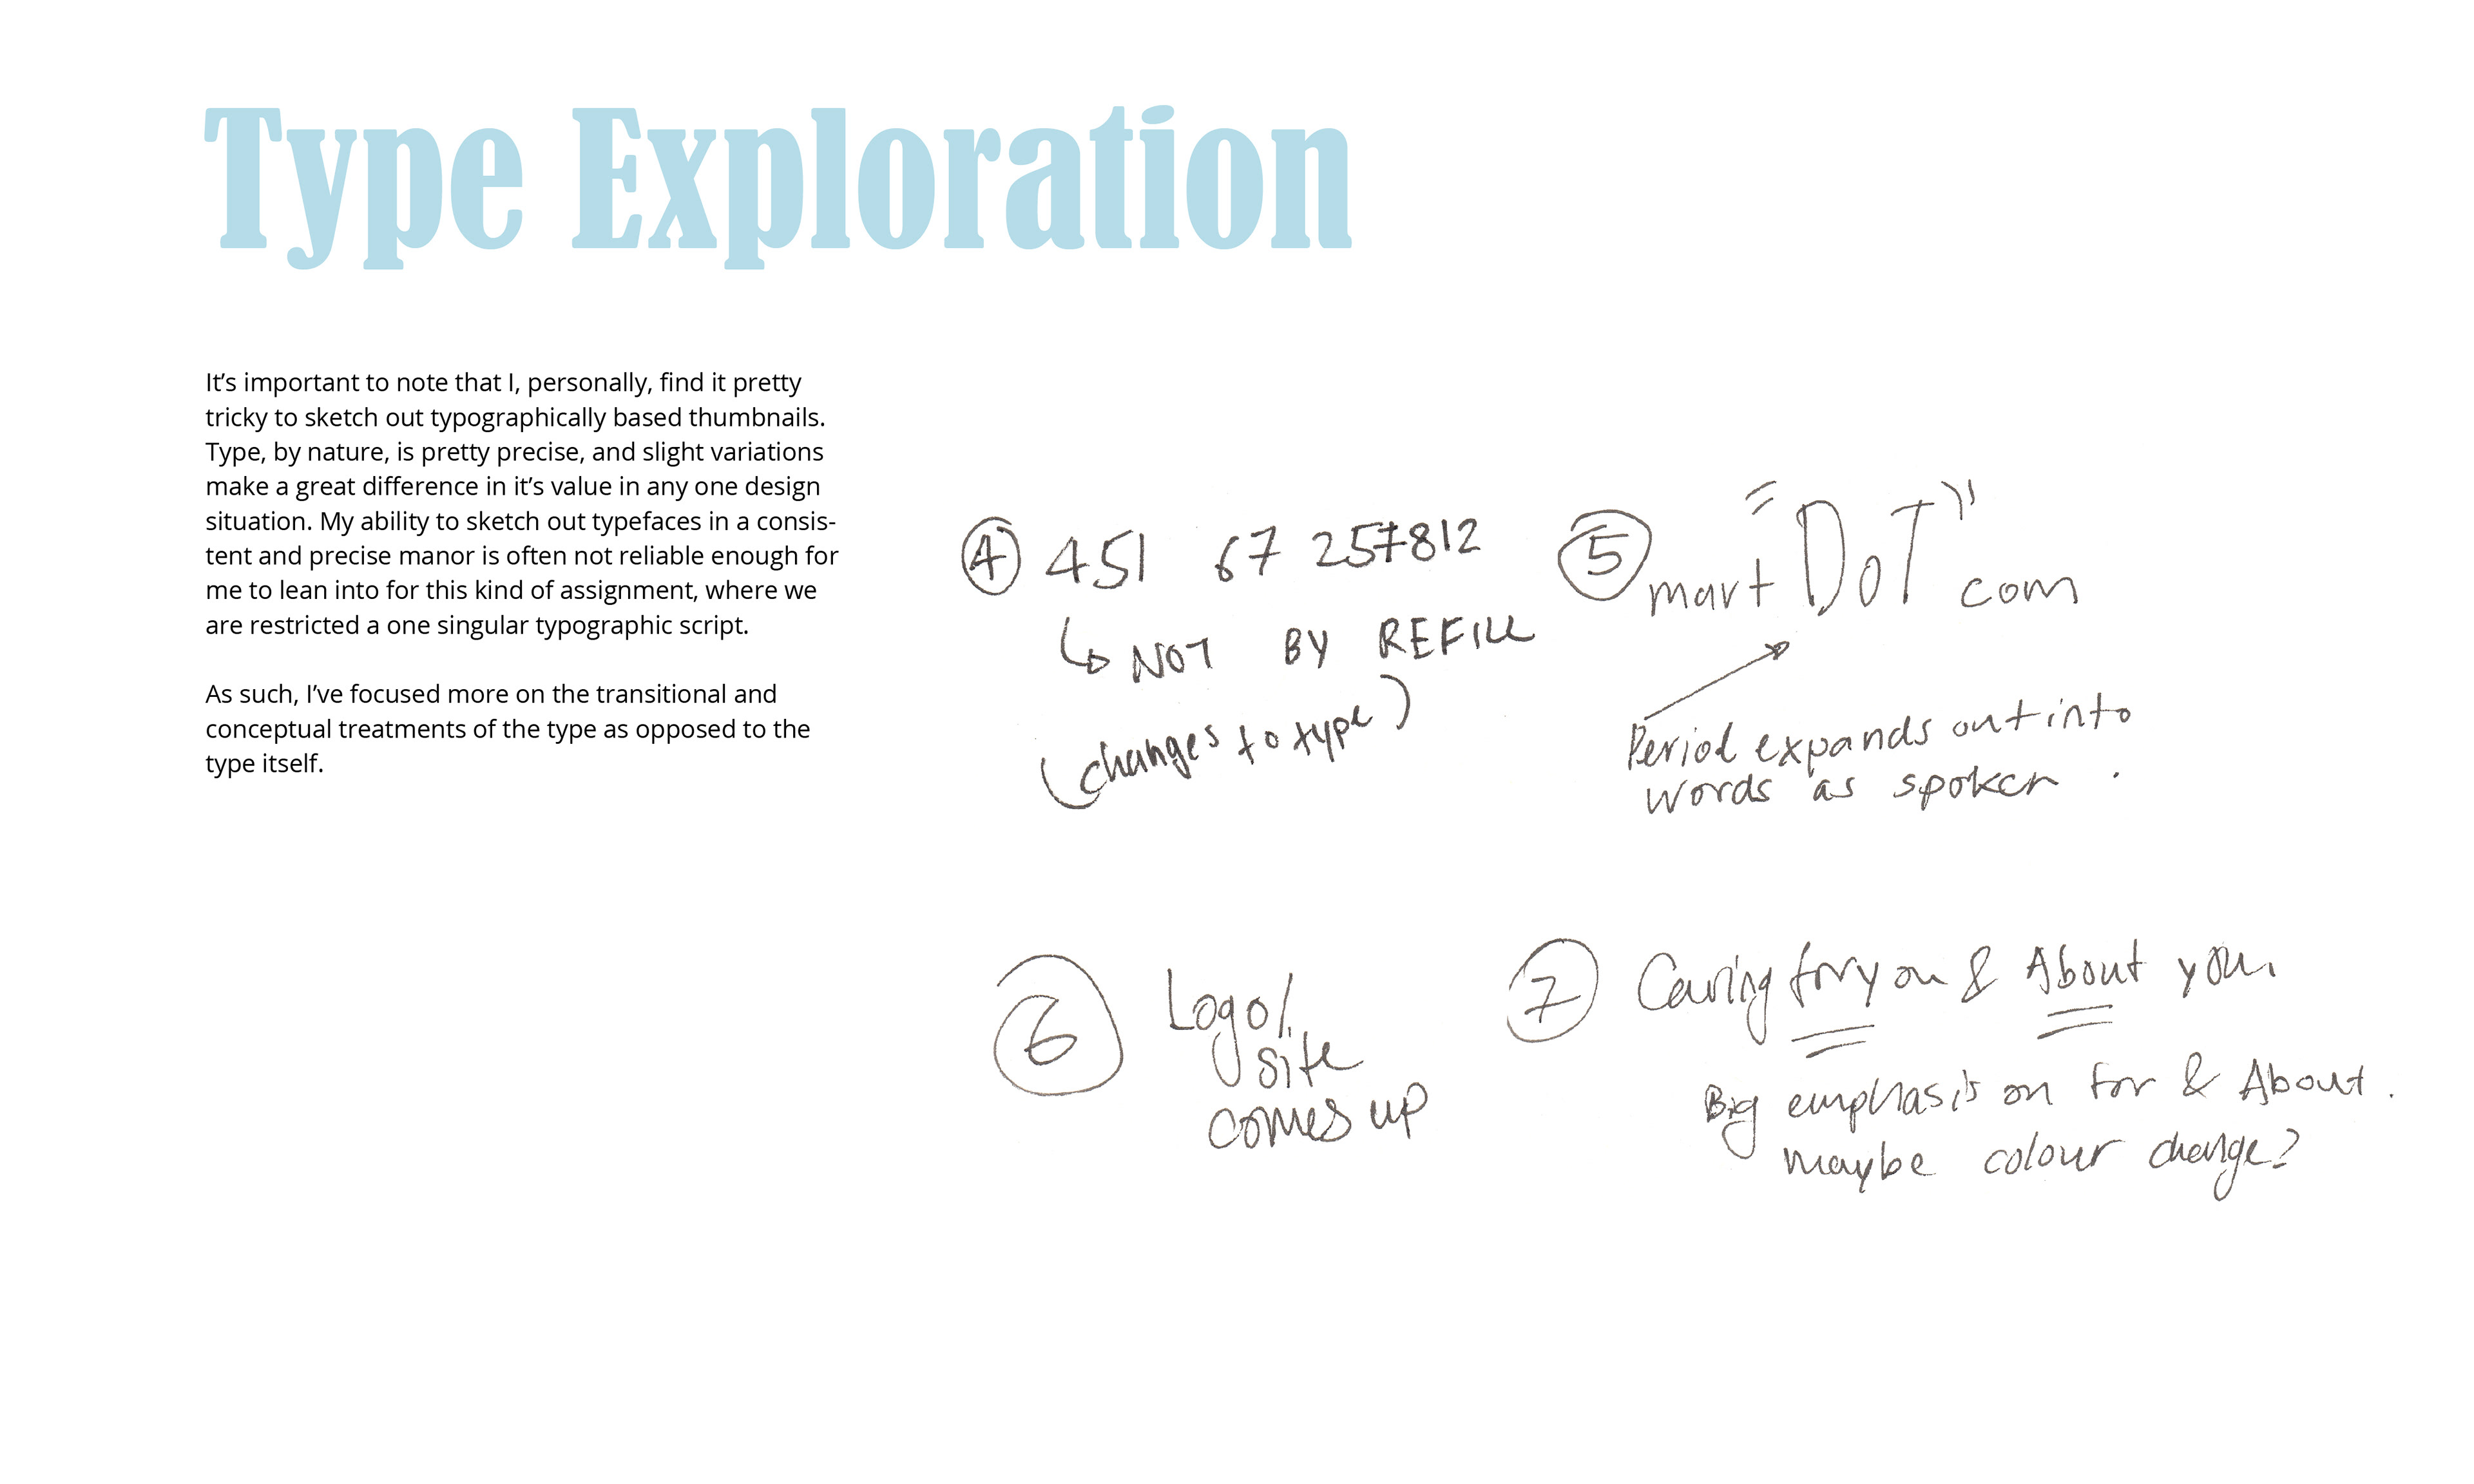 Type Exploration
It’s important to note that I, personally, find it pretty
tricky to sketch out typographically based thumbnails.
Type, by nature, is pretty precise, and slight variations
make a great difference in it’s value in any one design
situation. My ability to sketch out typefaces in a consis-
tent and precise manor is often not reliable enough for
me to lean into for this kind of assignment, where we
are restricted a one singular typographic script.
As such, I’ve focused more on the transitional and
conceptual treatments of the type as opposed to the
type itself.
4 451 67 257812
↳ NOT BY REFILL
(changes to type)
5 mart "DOT" com
Period expands out into
words as spoken.
6 Logo/
site
comes up
7 Caring for you & About you.
Big emphasis on for & About.
maybe colour change?